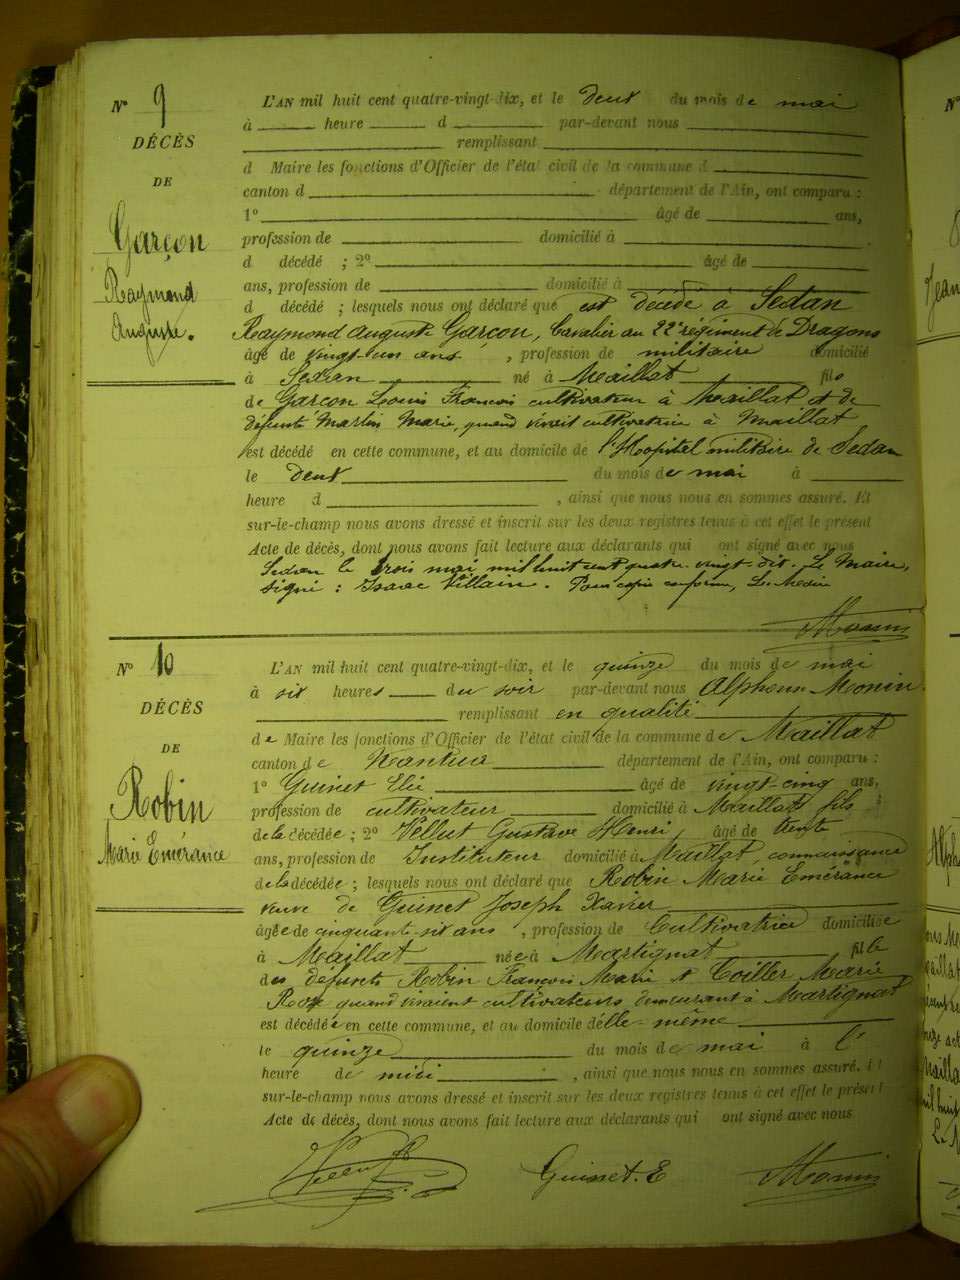 N° 9
DÉCÈS
DE
Garçon
Raymond
Auguste.
L'AN mil huit cent quatre-vingt-dix, et le deux du mois de mai
à heure d par-devant nous
remplissant
d Maire les fonctions d'Officier de l'état civil de la commune d
canton d département de l'Ain, ont comparu :
1° âgé de ans,
profession de domicilié à
d décédé ; 2° âgé de
ans, profession de domicilié à
d décédé ; lesquels nous ont déclaré que est décédé à Sedan
Raymond Auguste Garçon, Cavalier au 22e régiment de Dragons
âgé de vingt-un ans, profession de militaire domicilié
à Sedan né à Maillat fils
de Garçon Louis François cultivateur à Maillat et de
défunte Martin Marie, quand vivait cultivatrice à Maillat
est décédé en cette commune, et au domicile de l'Hopital militaire de Sedan
le deux du mois de mai à
heure d , ainsi que nous nous en sommes assuré. Et
sur-le-champ nous avons dressé et inscrit sur les deux registres tenus à cet effet le présent
Acte de décès, dont nous avons fait lecture aux déclarants qui ont signé avec nous
Sedan le trois mai mil huit cent quatre vingt-dix. Le Maire,
signé : Isaac Villain. Pour copie conforme, Le Maire
Monin
N° 10
DÉCÈS
DE
Robin
Marie Emérance
L'AN mil huit cent quatre-vingt-dix, et le quinze du mois de mai
à six heures du soir par-devant nous Alphonse Monin
remplissant en qualité
de Maire les fonctions d'Officier de l'état civil de la commune de Maillat
canton de Nantua département de l'Ain, ont comparu :
1° Guinet Elie âgé de vingt-cinq ans,
profession de cultivateur domicilié à Maillat fils
de la décédée ; 2° Vellut Gustave Henri, âgé de trente
ans, profession de Instituteur domicilié à Maillat, connaissance
de la décédée ; lesquels nous ont déclaré que Robin Marie Emérance
veuve de Guinet Joseph Xavier
âgée de cinquante-six ans, profession de Cultivatrice domiciliée
à Maillat née à Martignat fille
des défunts Robin François Marie et Coiller Marie
Rose quand vivaient cultivateurs demeurant à Martignat
est décédée en cette commune, et au domicile d'elle-même
le quinze du mois de mai à l'
heure de midi , ainsi que nous nous en sommes assuré. Et
sur-le-champ nous avons dressé et inscrit sur les deux registres tenus à cet effet le présent
Acte de décès, dont nous avons fait lecture aux déclarants qui ont signé avec nous
Guinet. E
Monin